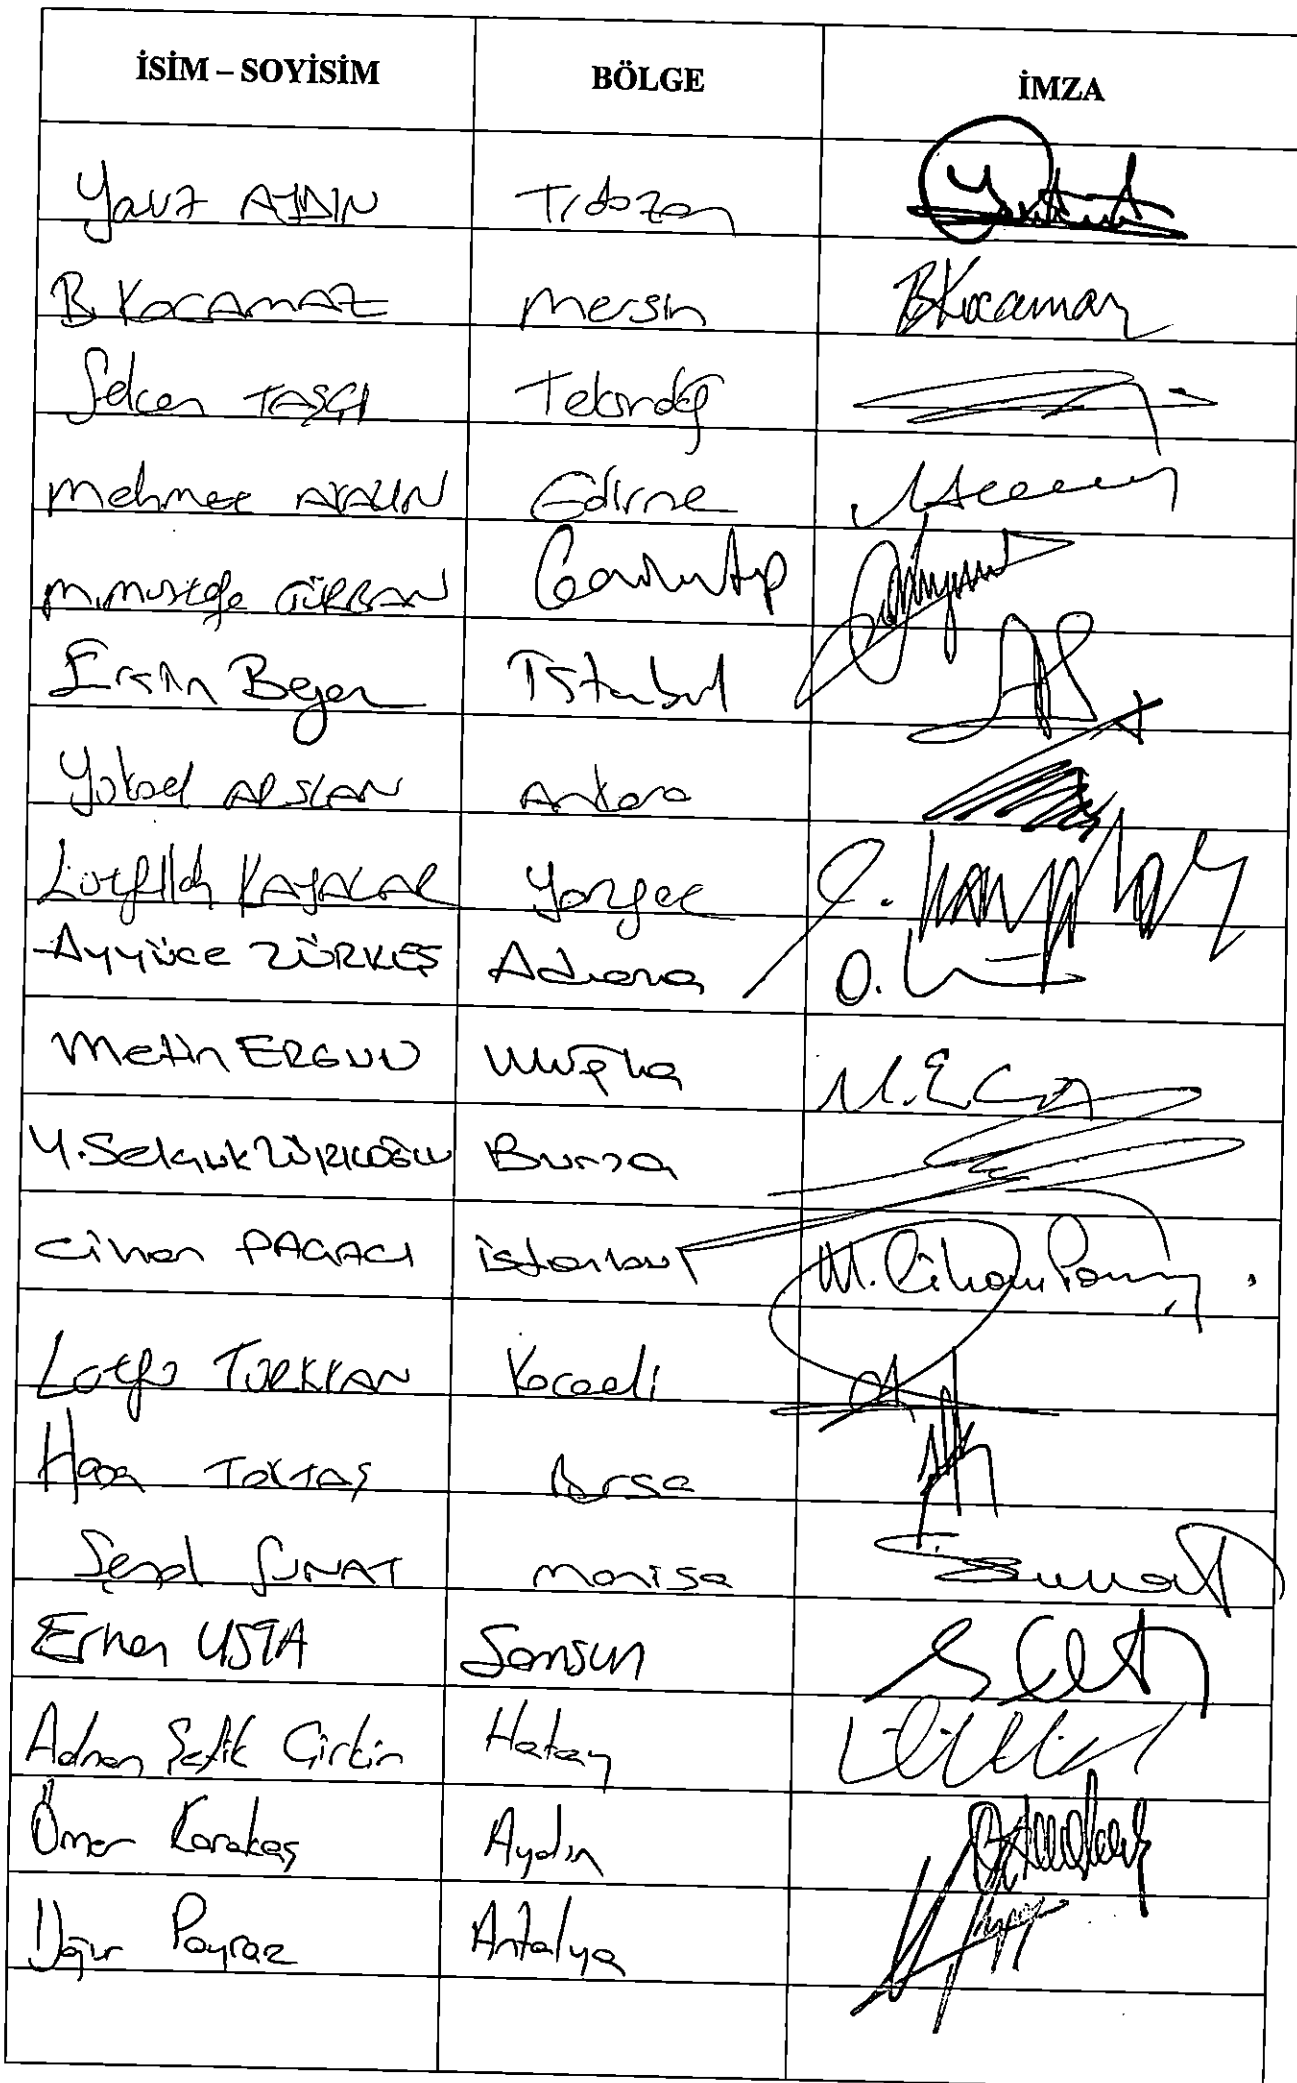 İSİM – SOYİSİM BÖLGE İMZA
Yavuz AYDIN Trabzon
B. KOCAMAZ Mersin B Kocamaz
Selcan TAŞÇI Tekirdağ
Mehmet AKALIN Edirne
M. Mustafa GÜRBAN Gaziantep
Ersin Beyaz İstanbul
Yüksel ARSLAN Ankara
Lütfullah KAYALAR Yozgat
Ayyüce TÜRKEŞ Adana
Metin ERGUN Muğla
Y. Selçuk TÜRKOĞLU Bursa
Cihan PAÇACI İstanbul M. Cihan
Lütfü TÜRKKAN Kocaeli
Hasan TOKTAŞ Bursa
Şenol SUNAT Manisa Sunat
Erhan USTA Samsun
Adnan Şefik Çirkin Hatay
Ömer Karakaş Aydın
Uğur Poyraz Antalya